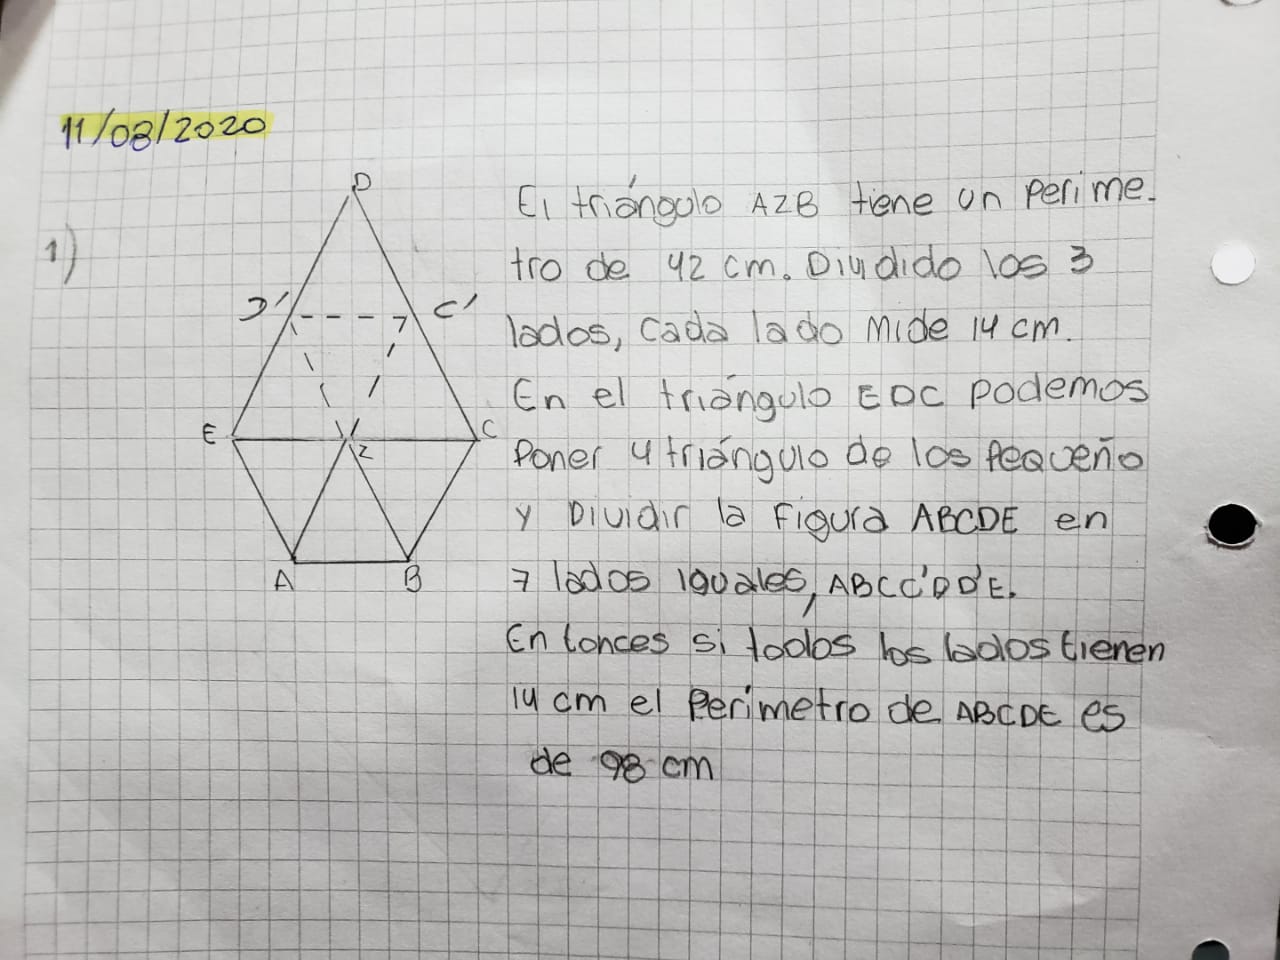 11/08/2020
1)
D
D'
C'
E
Z
C
A
B
El triángulo AZB tiene un Perime-
tro de 42 cm. Dividido los 3
lados, cada lado mide 14 cm.
En el triángulo EDC podemos
Poner 4 triángulo de los Pequeño
y Dividir la Figura ABCDE en
7 lados iguales, ABCC'DD'E.
Entonces si todos los lados tienen
14 cm el Perímetro de ABCDE es
de 98 cm